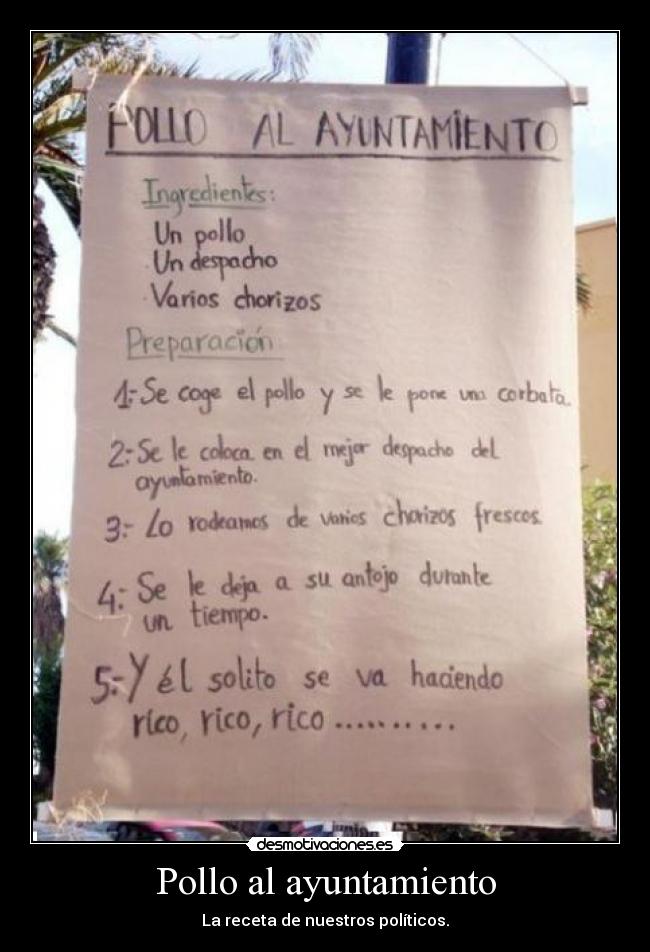 POLLO AL AYUNTAMIENTO
Ingredientes:
Un pollo
Un despacho
Varios chorizos
Preparación
1:- Se coge el pollo y se le pone una corbata.
2:- Se le coloca en el mejor despacho del
ayuntamiento.
3:- Lo rodeamos de varios chorizos frescos.
4:- Se le deja a su antojo durante
un tiempo.
5:- Y él solito se va haciendo
rico, rico, rico ..........
desmotivaciones.es
Pollo al ayuntamiento
La receta de nuestros políticos.